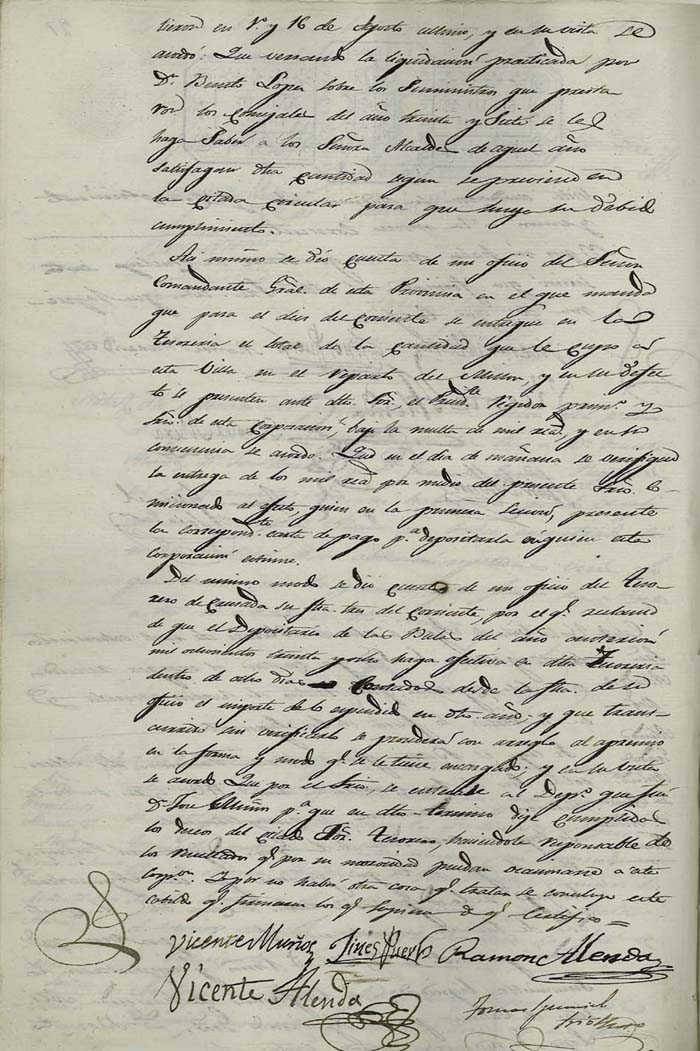 tieron en 1º y 16 de Agosto ultimo, y en su vista se
acordó: Que versando la liquidacion practicada por
Dn Benito Lopez sobre los Suministros que presta
ron los Concejales del año treinta y Siete se les
haga Saber a los Señores Alcaldes de aquel año
satisfagan dha cantidad segun se previene en
la citada circular para que tenga su debido
cumplimiento.
Asi mismo se dió cuenta de un oficio del Señor
Comandante Gral. de esta Provincia en el que manda
que para el dies del Corriente se entregue en la
Tesoreria el total de la cantidad que le cupo a
esta Villa en el reparto del, y en su defec
to se presenten ante dho Sor, el Presidte Regidor primº y
Srio. de esta Corporacion, bajo la multa de mil rs, y en su
consecuencia se acordo: Que en el dia de mañana se verifique
la entrega de los mil rs por medio del presente Srio. Co-
misionado al efecto, quien en la primera Sesion, presente
la correspondte carta de pago pa depositarla en quien esta
Corporacion estime.
Del mismo modo se dió cuenta de un oficio del Teso-
rero de Cruzada su fha tres del Corriente por el q. reclama
de que el Depositario de las Bulas del año anterior
mil ochocientos treinta y ocho haga efectiva en dha Tesoreria
dentro de ocho dias Contados desde la fha. de su
oficio el importe de lo espendido en dho. año; y que trans-
currido sin verificarlo se procederá con arreglo al apremio
en la forma y modo q. se le tiene encargado; y en su vista
se acordó: Que por el Srio, se entiende al Deposº que fué
Dn Jose Muños pa que en dho termino deje cumplidos
los deseos del citado Sor. Tesorero, haciendole responsable de
los resultados q. por su morosidad puedan ocasionarse a esta
Corpon. Y por no haber otra cosa q. tratar se concluyó este
cabildo q. firmaron los q. supieron de q. Certifico =
Vicente Muños Gines Puerto Ramon Alenda
Vicente Alenda
Tomas
Srio